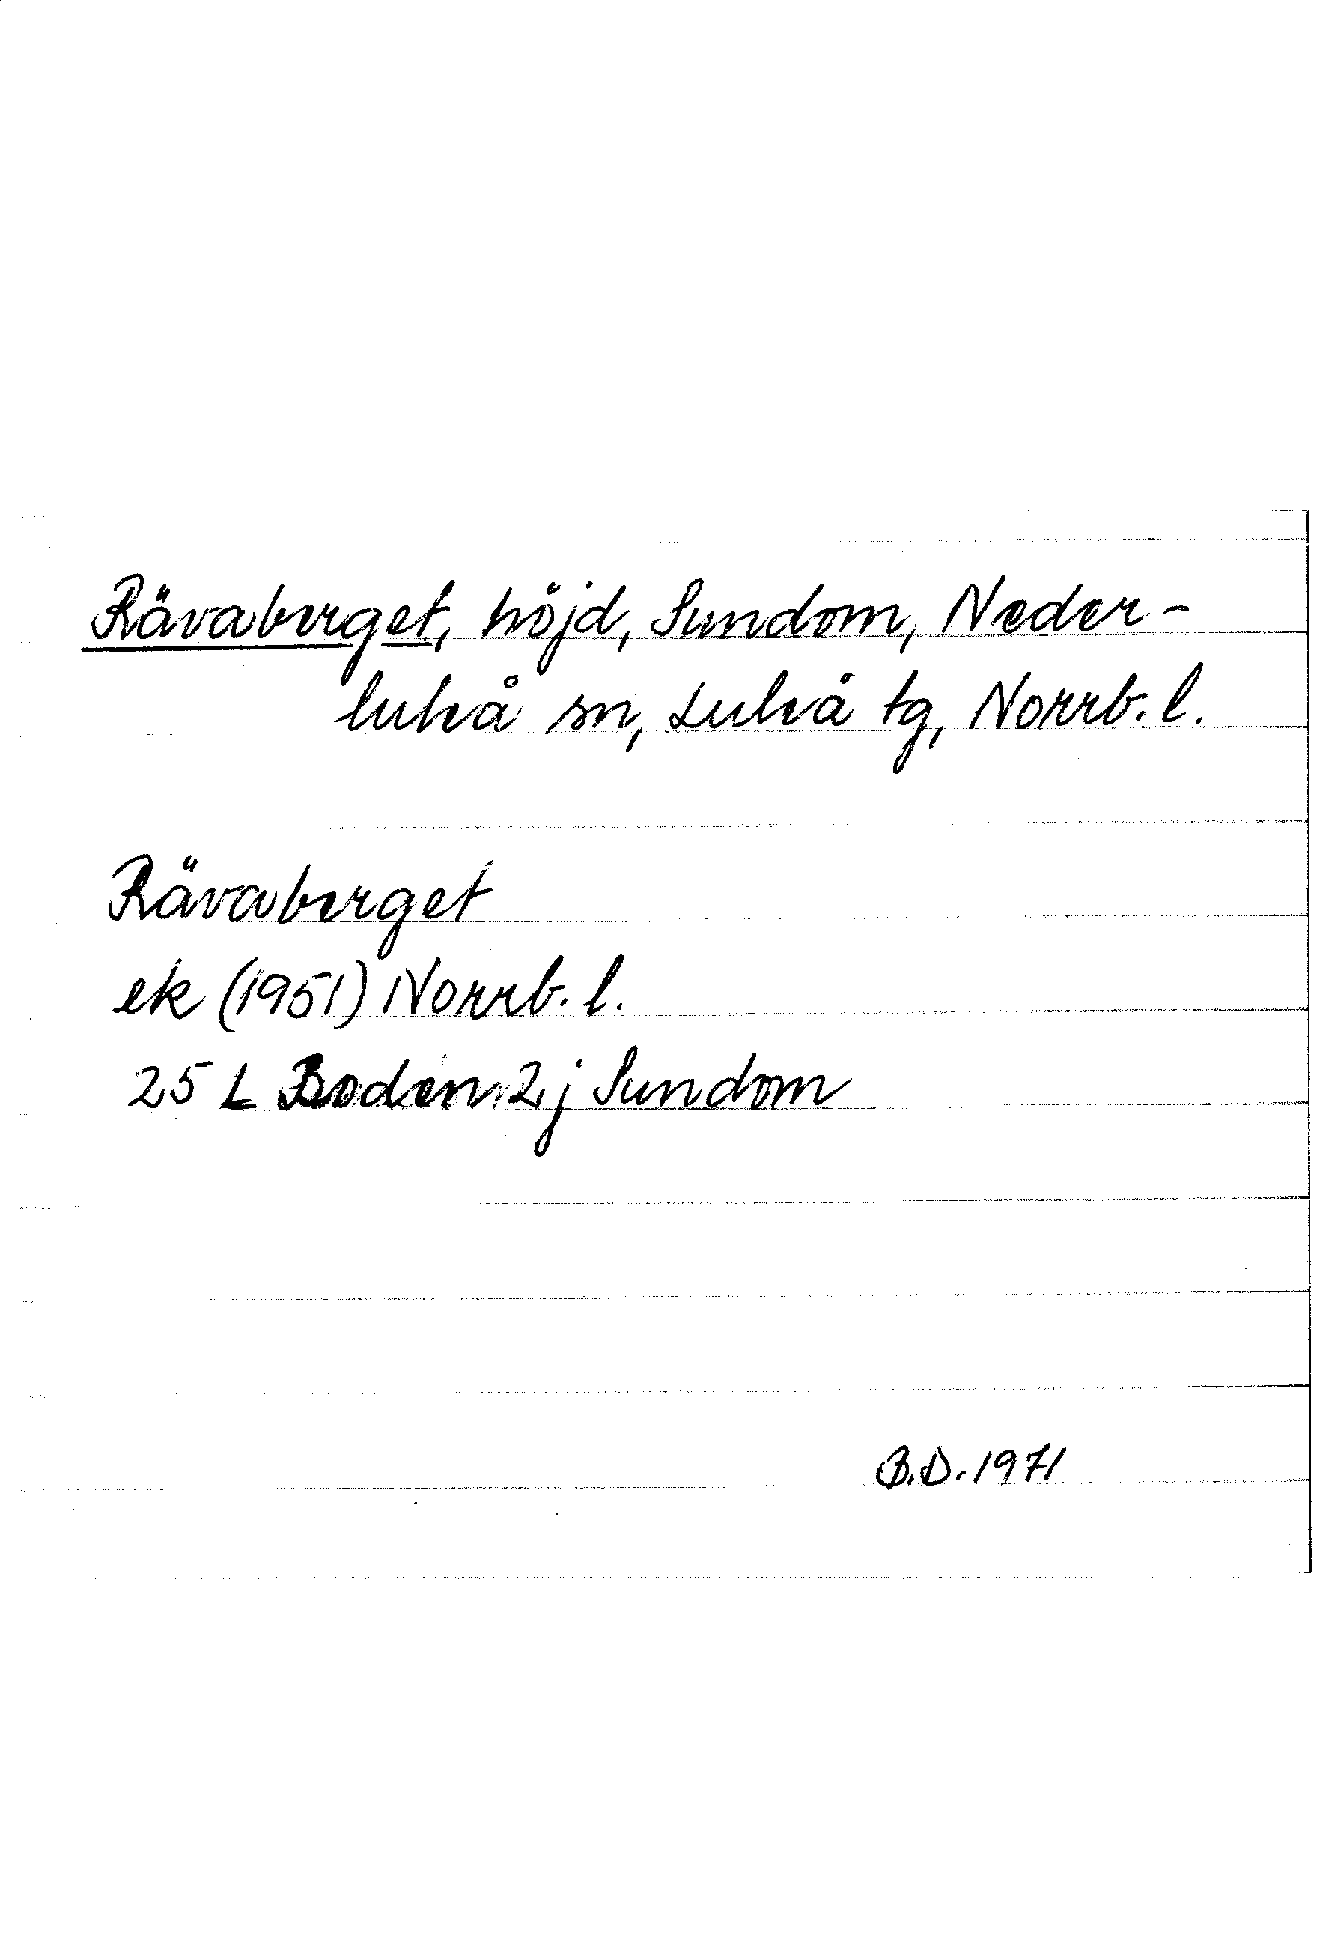 Rävaberget, höjd, Sundom, Neder-
luleå sn, Luleå tg, Norrb. l.
Rävaberget
ek (1951) Norrb. l.
25 L Boden 2j Sundom
B.D. 1971